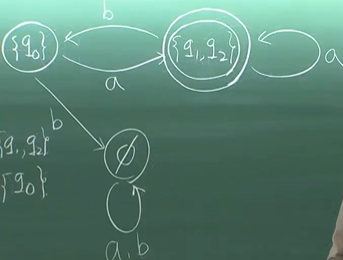 b
{q₀}
{q₁,q₂}
a
a
b
{q₁,q₂}
{q₀}
∅
a,b